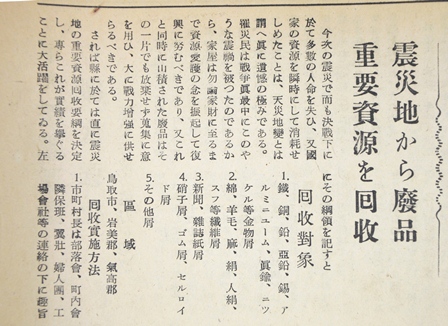 震災地から廢品
重要資源を回收
今次の震災で而も決戰下に
於て多數の人命を失ひ、又國
家の資源を瞬時にして消耗せ
しめたことは、天災地變とは
謂へ眞に遺憾の極みである。
罹災民は戰爭眞最中にこのや
うな震禍を被つたのであるか
ら、家屋は勿論家財に至るま
で資源愛護の念を振起して復
興に努むべきであり、又これ
と同時に山積された廢品はそ
の一片でも放棄せず蒐集に意
を用ひ、大に戰力增强に供せ
らるべきである。
されば縣に於ては直に震災
地の重要資源回收要綱を決定
し、專らこれが實績を擧ぐる
ことに大活躍をしてゐる。左
にその綱領を記すと
回收對象
1.鐵、銅、鉛、亞鉛、錫、ア
ルミニユーム、眞鍮、ニツ
ケル等金物屑
2.綿、羊毛、麻、絹、人絹、
スフ等纖維屑
3.新聞、雜誌紙屑
4.硝子屑、ゴム屑、セルロイ
ド屑
5.その他屑
區域
鳥取市、岩美郡、氣高郡
回收實施方法
1.市町村長は部落會、町內會
隣保班、翼壯、婦人團、工
場會社等の連絡の下に趣旨